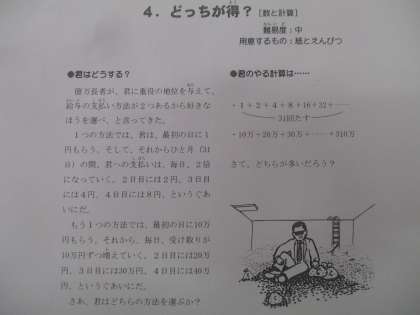 4．どっちが得？［数と計算］
難易度：中
用意するもの：紙とえんぴつ
●君はどうする？
億万長者が、君に重役の地位を与えて、
給与の支払い方法が２つあるから好きな
ほうを選べ、と言ってきた。
１つの方法では、君は、最初の日に１
円もらう。そして、それからひと月（31
日）の間、君への支払いは、毎日、２倍
になっていく。２日目には２円、３日目
には４円、４日目には８円、というぐあ
いにだ。
もう１つの方法では、最初の日に10万
円もらう。それから、毎日、受け取りが
10万円ずつ増えていく。２日目には20万
円、３日目には30万円、４日目には40万
円、というぐあいにだ。
さあ、君はどちらの方法を選ぶか？
●君のやる計算は……
・１＋２＋４＋８＋16＋32＋……
31回たす
・10万＋20万＋30万＋……＋310万
さて、どちらが多いだろう？